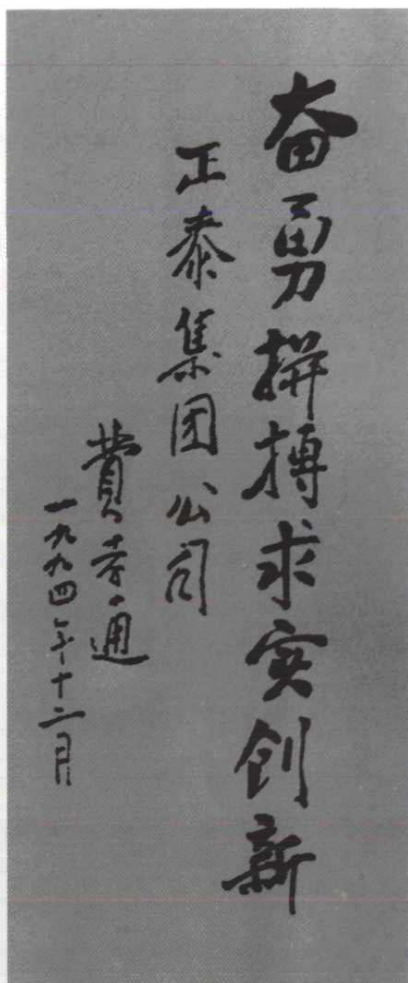 奋勇拼搏求实创新
正泰集团公司
費孝通
一九九四年十二月